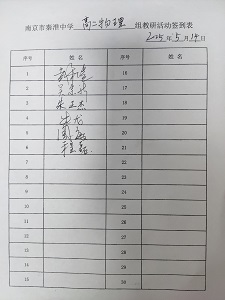 南京市秦淮中学 高二物理 组教研活动签到表
2025年5月14日
序号 姓名 序号 姓名
1 16
2 17
3 朱正杰 18
4 朱龙 19
5 20
6 21
7 22
8 23
9 24
10 25
11 26
12 27
13 28
14 29
15 30